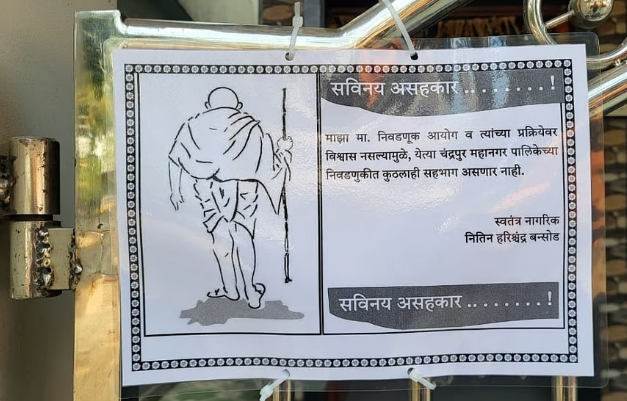 सविनय असहकार ........!
माझा मा. निवडणूक आयोग व त्यांच्या प्रक्रियेवर
विश्वास नसल्यामुळे, येत्या चंद्रपुर महानगर पालिकेच्या
निवडणुकीत कुठलाही सहभाग असणार नाही.
स्वतंत्र नागरिक
नितिन हरिश्चंद्र बन्सोड
सविनय असहकार ........!